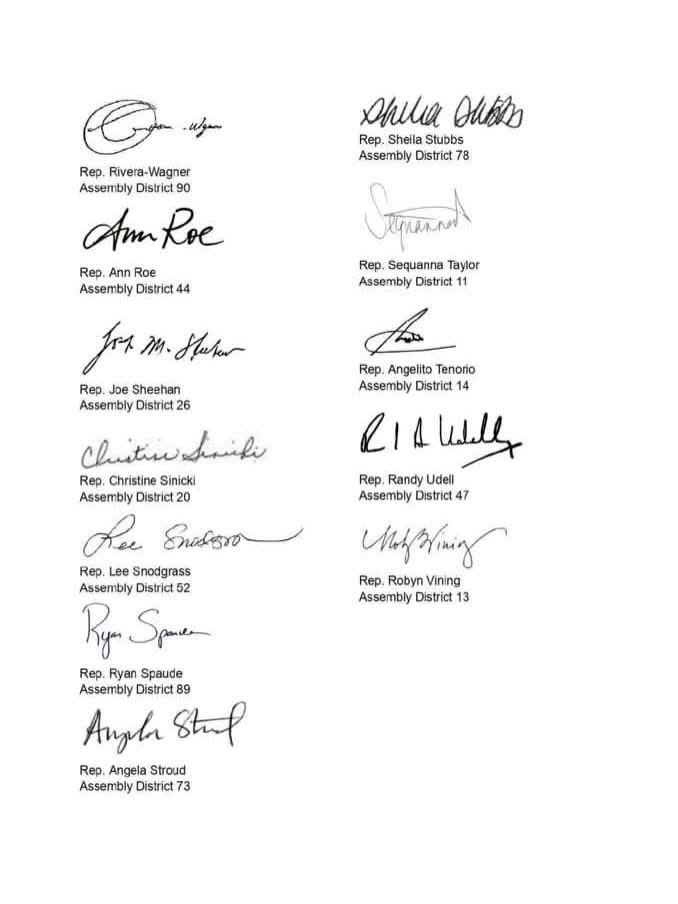 Rep. Rivera-Wagner
Assembly District 90
Ann Roe
Rep. Ann Roe
Assembly District 44
M.
Rep. Joe Sheehan
Assembly District 26
Christine Sinicki
Rep. Christine Sinicki
Assembly District 20
Lee Snodgrass
Rep. Lee Snodgrass
Assembly District 52
Ryan Spaude
Rep. Ryan Spaude
Assembly District 89
Angela Stroud
Rep. Angela Stroud
Assembly District 73
Sheila Stubbs
Rep. Sheila Stubbs
Assembly District 78
Rep. Sequanna Taylor
Assembly District 11
Rep. Angelito Tenorio
Assembly District 14
Udell
Rep. Randy Udell
Assembly District 47
Vining
Rep. Robyn Vining
Assembly District 13